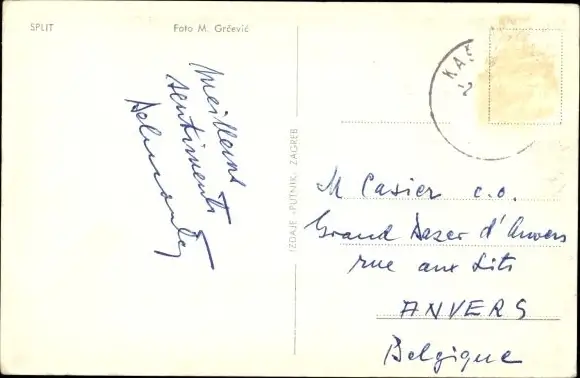 SPLIT
Foto M. Grčević
Meilleurs
sentiments
IZDAJE »PUTNIK« ZAGREB
KAŠ
2
M Casier c.o.
Grand Bazar d'Anvers
rue aux Lits
ANVERS
Belgique